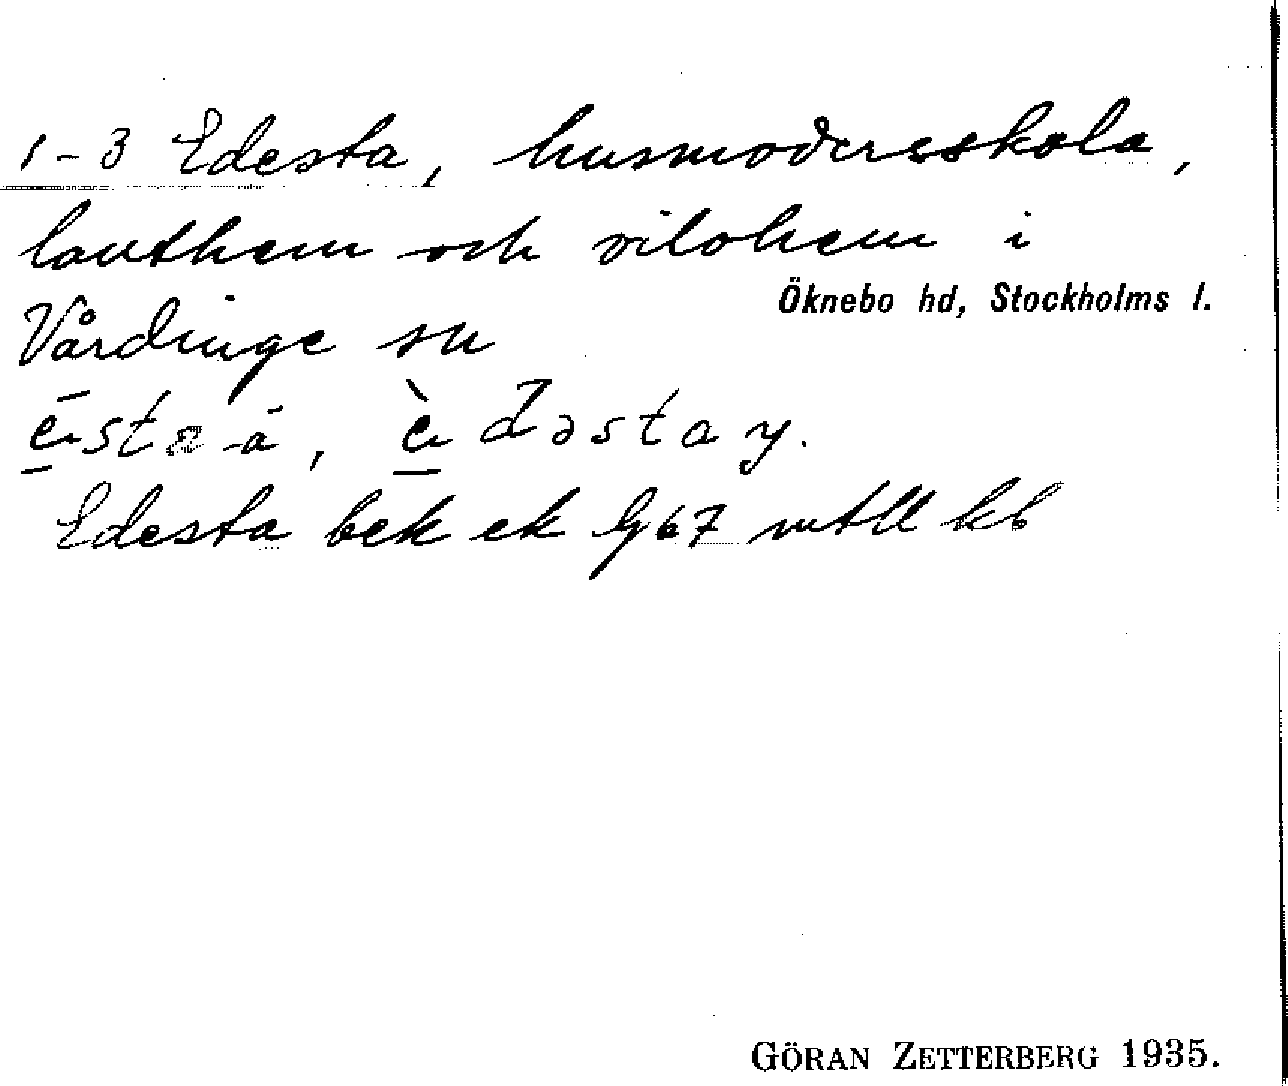 1-3 Edesta, husmodersskola,
lanthem och vilohem i
Öknebo hd, Stockholms l.
Vårdinge sn
Edesta bek ek Bg 67 mtll kb
GÖRAN ZETTERBERG 1935.